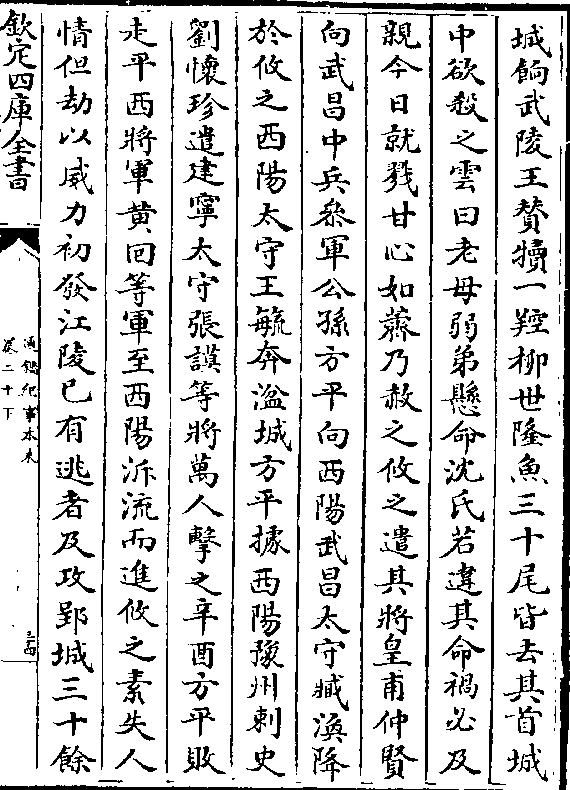 城餉武陵王贊犢一羫柳世隆魚三十尾皆去其首城
中欲殺之雲曰老母弱弟懸命沈氏若違其命禍必及
親今日就戮甘心如薺乃赦之攸之遣其將皇甫仲賢
向武昌中兵參軍公孫方平向西陽武昌太守臧渙降
於攸之西陽太守王毓奔湓城方平據西陽豫州刺史
劉懷珍遣建寧太守張謨等將萬人擊之辛酉方平敗
走平西將軍黃回等軍至西陽泝流而進攸之素失人
情但劫以威力初發江陵已有逃者及攻郢城三十餘
欽定四庫全書
通鑑紀事本末
卷二十下